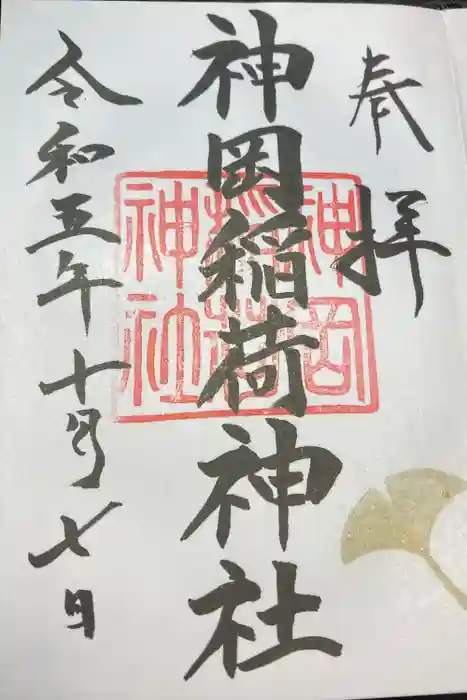 奉拝
神岡稲荷神社
神岡稲荷神社
令和五年十月七日